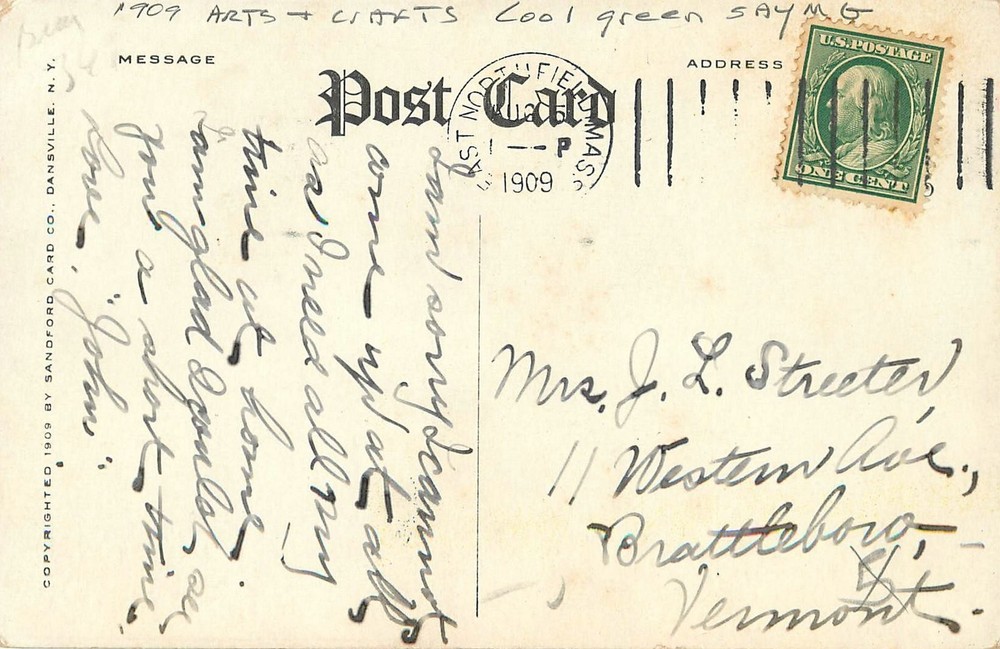 1909 ARTS + CRAFTS Cool green SAYING
MESSAGE
Post Card
ADDRESS
U.S. POSTAGE
ONE CENT
EAST NORTHFIELD MASS.
P
1909
COPYRIGHTED 1909 BY SANDFORD CARD CO., DANSVILLE, N. Y.
I am sorry I cannot
come up at all,
as I need all my
time at home.
I am glad I could see
you a short time.
Love, "John".
Mrs. J. L. Streeter,
11 Western Ave.,
Brattleboro,
Vermont.